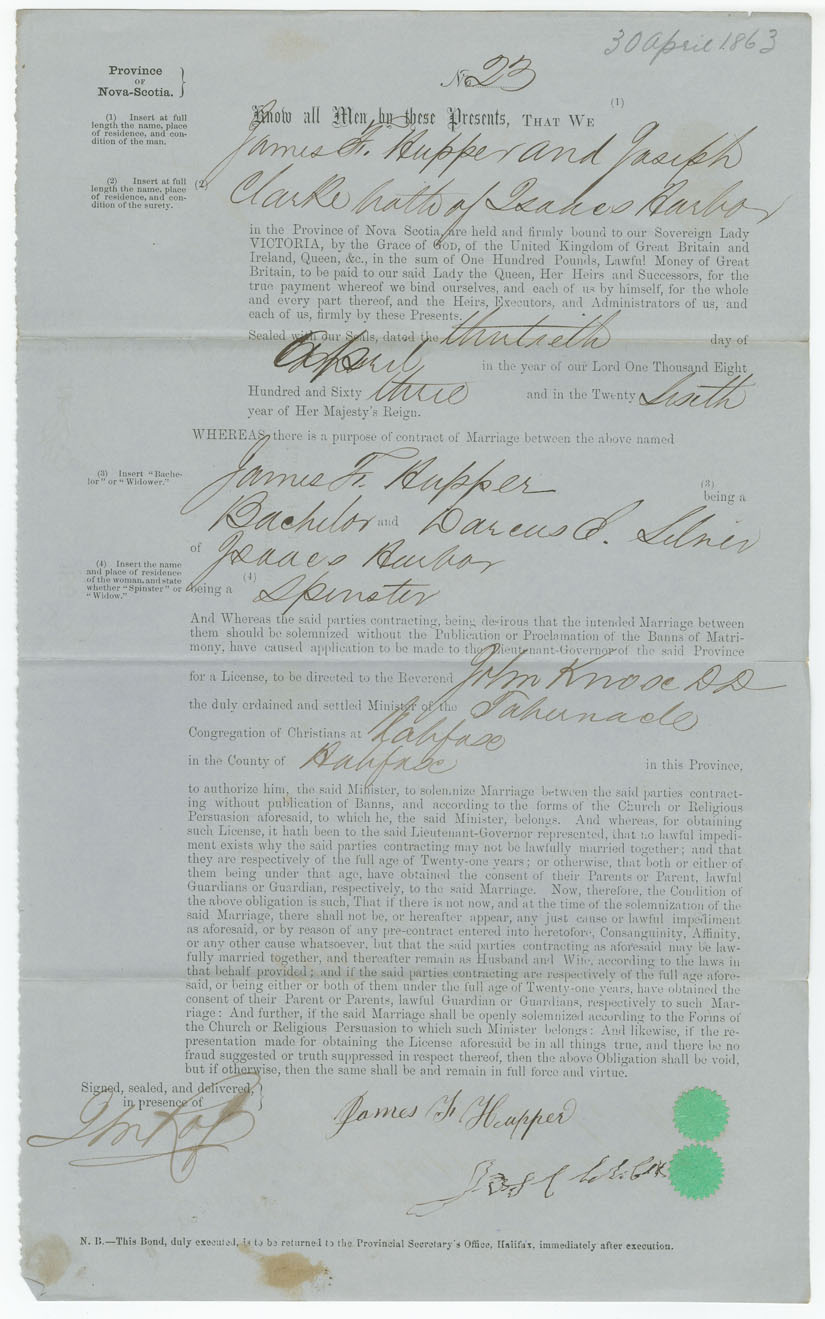 30 April 1863
Province
OF
Nova-Scotia. }
No 23
(1) Insert at full
length the name, place
of residence, and con-
dition of the man.
Know all Men by these Presents, THAT WE (1)
James F. Hupper and Joseph
(2) Insert at full
length the name, place
of residence, and con-
dition of the surety.
(2) Clarke both of Isaacs Harbor
in the Province of Nova Scotia, are held and firmly bound to our Sovereign Lady
VICTORIA, by the Grace of GOD, of the United Kingdom of Great Britain and
Ireland, Queen, &c., in the sum of One Hundred Pounds, Lawful Money of Great
Britain, to be paid to our said Lady the Queen, Her Heirs and Successors, for the
true payment whereof we bind ourselves, and each of us by himself, for the whole
and every part thereof, and the Heirs, Executors, and Administrators of us, and
each of us, firmly by these Presents.
Sealed with our Seals, dated the thirtieth day of
April in the year of our Lord One Thousand Eight
Hundred and Sixty three and in the Twenty Sixth
year of Her Majesty's Reign.
WHEREAS there is a purpose of contract of Marriage between the above named
(3) Insert "Bache-
lor" or "Widower."
James F. Hupper (3) being a
Bachelor and Darcus S.
of Isaacs Harbor
(4) Insert the name
and place of residence
of the woman, and state
whether "Spinster" or
"Widow."
being a (4) Spinster
And Whereas the said parties contracting, being desirous that the intended Marriage between
them should be solemnized without the Publication or Proclamation of the Banns of Matri-
mony, have caused application to be made to the Lieutenant-Governor of the said Province
for a License, to be directed to the Reverend John Knox DD
the duly ordained and settled Minister of the Tabernacle
Congregation of Christians at Halifax
in the County of Halifax in this Province,
to authorize him, the said Minister, to solemnize Marriage between the said parties contract-
ing without publication of Banns, and according to the forms of the Church or Religious
Persuasion aforesaid, to which he, the said Minister, belongs. And whereas, for obtaining
such License, it hath been to the said Lieutenant-Governor represented, that no lawful impedi-
ment exists why the said parties contracting may not be lawfully married together; and that
they are respectively of the full age of Twenty-one years; or otherwise, that both or either of
them being under that age, have obtained the consent of their Parents or Parent, lawful
Guardians or Guardian, respectively, to the said Marriage. Now, therefore, the Condition of
the above obligation is such, That if there is not now, and at the time of the solemnization of the
said Marriage, there shall not be, or hereafter appear, any just cause or lawful impediment
as aforesaid, or by reason of any pre-contract entered into heretofore, Consanguinity, Affinity,
or any other cause whatsoever, but that the said parties contracting as aforesaid may be law-
fully married together, and thereafter remain as Husband and Wife, according to the laws in
that behalf provided; and if the said parties contracting are respectively of the full age afore-
said, or being either or both of them under the full age of Twenty-one years, have obtained the
consent of their Parent or Parents, lawful Guardian or Guardians, respectively to such Mar-
riage: And further, if the said Marriage shall be openly solemnized according to the Forms of
the Church or Religious Persuasion to which such Minister belongs: And likewise, if the re-
presentation made for obtaining the License aforesaid be in all things true, and there be no
fraud suggested or truth suppressed in respect thereof, then the above Obligation shall be void,
but if otherwise, then the same shall be and remain in full force and virtue.
Signed, sealed, and delivered,
in presence of }
James F Hupper
N. B.—This Bond, duly executed, is to be returned to the Provincial Secretary's Office, Halifax, immediately after execution.